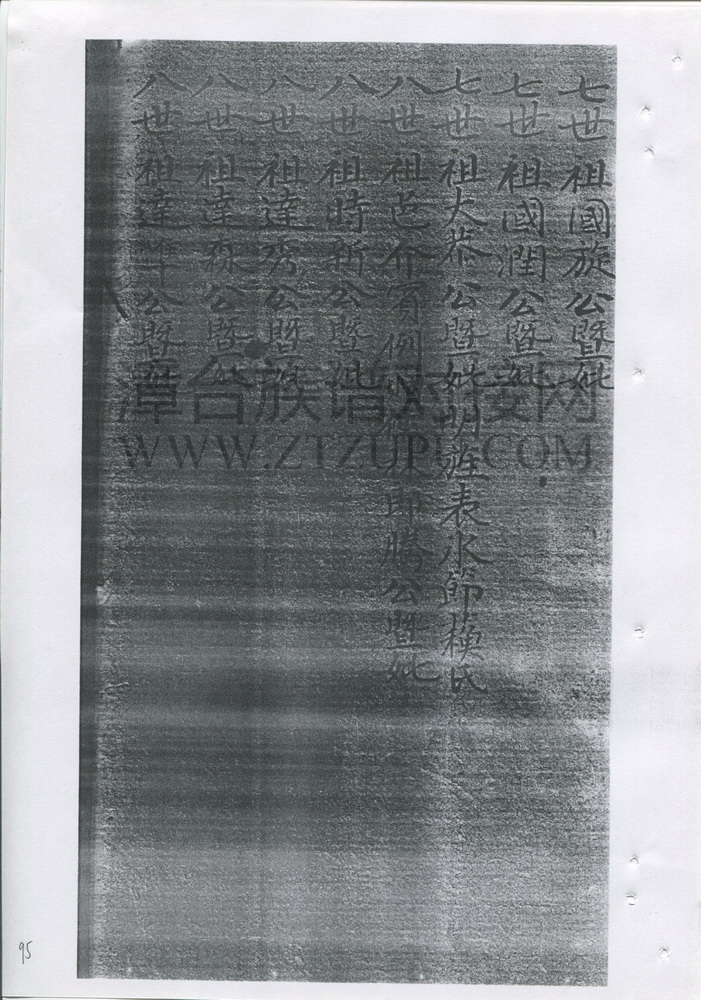 七世祖國旋公暨妣
七世祖國潤公暨妣
七世祖大恭公暨妣明旌表冰節蘓氏
八世祖邑介賓例 即騰公暨妣
八世祖時新公暨妣
八世祖達秀公暨妣
八世祖達森公暨妣
八世祖達 公暨妣
漳台族谱对接网
WWW.ZTZUPU.COM
95